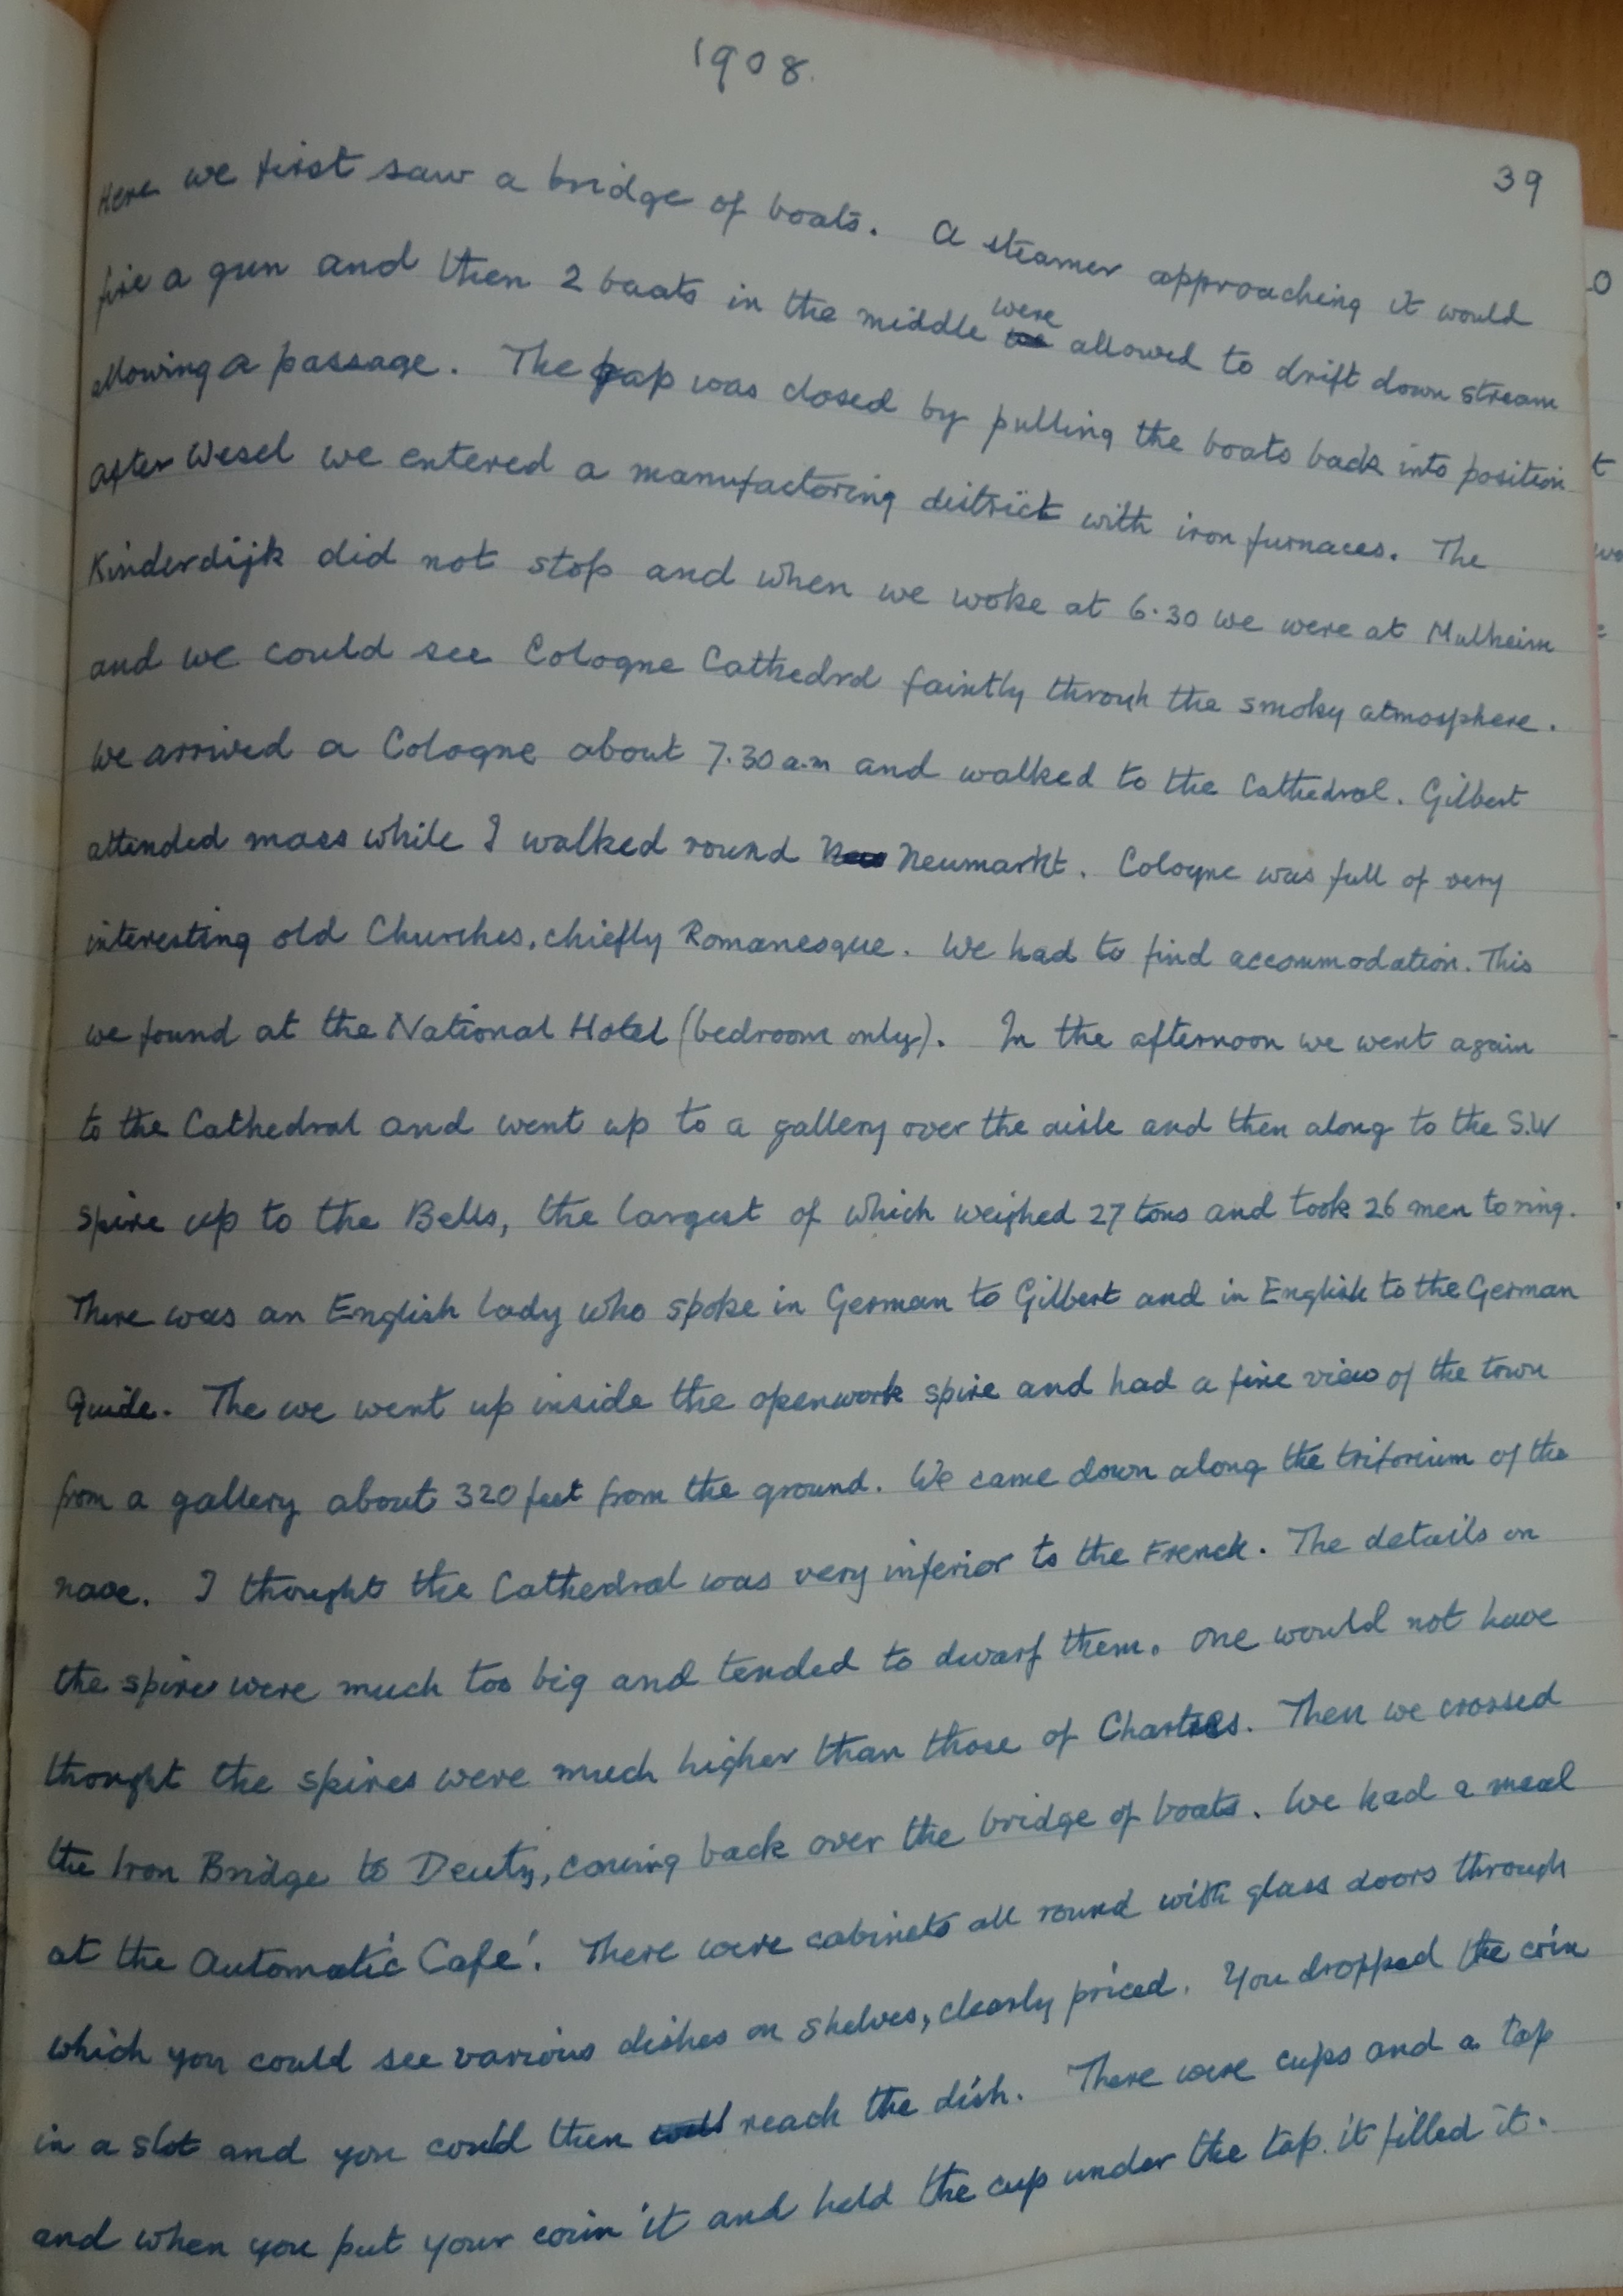 1908.
39
Here we first saw a bridge of boats. A steamer approaching it would
fire a gun and then 2 boats in the middle were allowed to drift down stream
allowing a passage. The gap was closed by pulling the boats back into position
After Wesel we entered a manufactoring district with iron furnaces. The
Kinderdijk did not stop and when we woke at 6.30 we were at Mulheim
and we could see Cologne Cathedral faintly through the smoky atmosphere.
We arrived a Cologne about 7.30 a.m and walked to the Cathedral. Gilbert
attended mass while I walked round Neumarkt. Cologne was full of very
interesting old Churches, chiefly Romanesque. We had to find accommodation. This
we found at the National Hotel (bedroom only). In the afternoon we went again
to the Cathedral and went up to a gallery over the aisle and then along to the S.W
spire up to the Bells, the largest of which weighed 27 tons and took 26 men to ring.
There was an English lady who spoke in German to Gilbert and in English to the German
Guide. The we went up inside the openwork spire and had a fine view of the town
from a gallery about 320 feet from the ground. We came down along the triforium of the
nave. I thought the Cathedral was very inferior to the French. The details on
the spires were much too big and tended to dwarf them. One would not have
thought the spires were much higher than those of Chartres. Then we crossed
the Iron Bridge to Deutz, coming back over the bridge of boats. We had a meal
at the Automatic Café. There were cabinets all round with glass doors through
which you could see various dishes on shelves, clearly priced. You dropped the coin
in a slot and you could then reach the dish. There were cups and a tap
and when you put your coin it and held the cup under the tap it filled it.